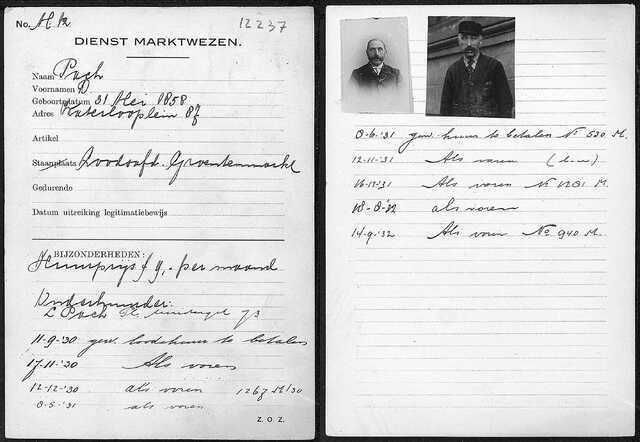 No. M 12
12237
DIENST MARKTWEZEN.
Naam Pach
Voornamen D.
Geboortedatum 31 Mei 1858
Adres Waterlooplein 87
Artikel
Staanplaats Loodsafd. Groentenmarkt
Gedurende
Datum uitreiking legitimatiebewijs
BIJZONDERHEDEN:
Huurprijs f 9,- per maand
L Pach 73
11-9-'30 gew. loodshuur te betalen
17-11-'30 Als voren
12-12-'30 als voren 1267 M/30
8-5-'31 als voren
Z. O. Z.
8-6-'31 gew. huur te betalen No 530 M.
12-11-'31 Als voren
16-12-'31 Als voren No 1201 M.
18-8-'32 als voren
14-9-'32 Als voren No 940 M.